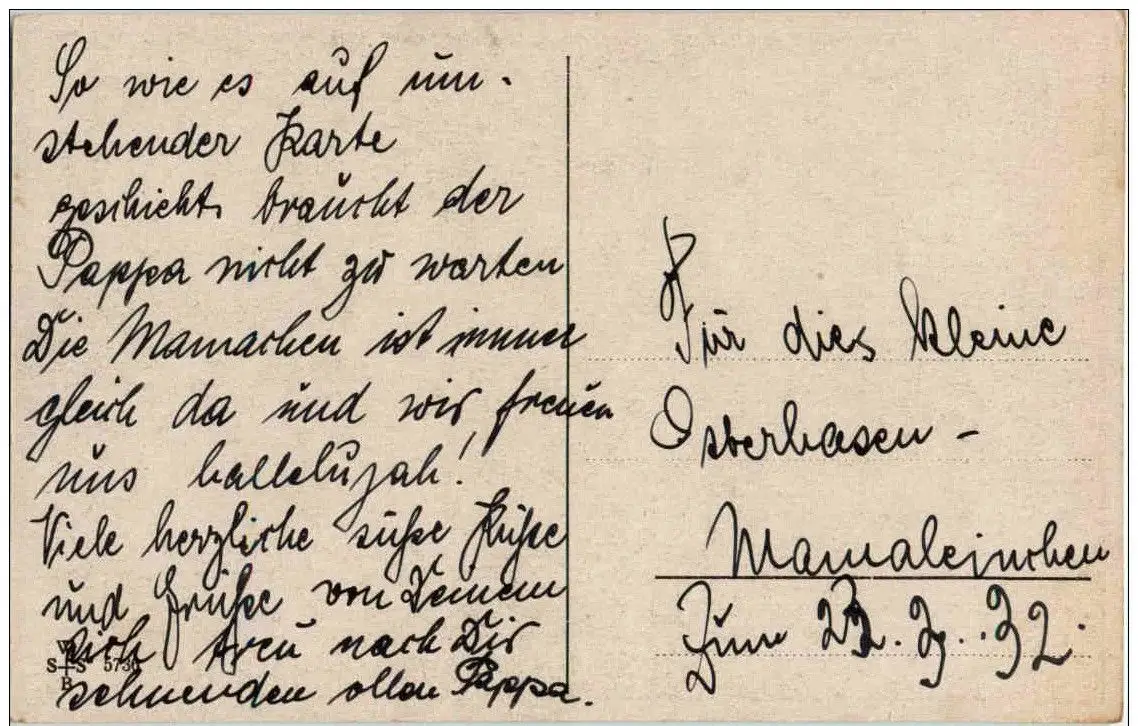 So wie es auf um-
stehender Karte
geschieht, braucht der
Pappa nicht zu warten
Die Mamachen ist immer
gleich da und wir freuen
uns hallelujah!
Viele herzliche süße Küße
und Grüße von Deinem
sich treu nach Dir
sehnenden ollen Pappa.
S S 5730
B
Für dies kleine
Osterhasen -
Mamaleinchen
Zum 23. 3. 32.